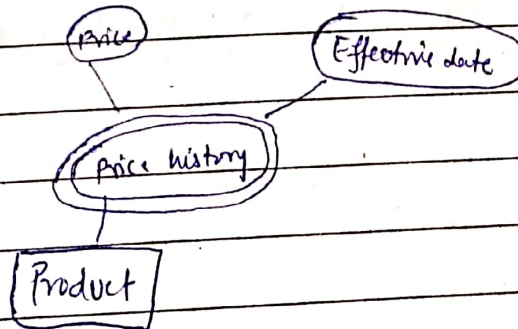 Price
Effective date
Price history
Product